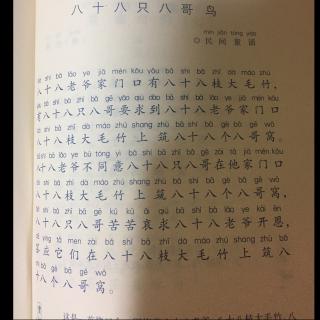 八十八只八哥鸟
mín jiān tóng yáo
◎民间童谣
shí bā lǎo ye jiā mén kǒu yǒu bā shí bā zhī dà máo zhú
八十八老爷家门口有八十八枝大毛竹，
shí bā zhī bā gē yāo qiú dào bā shí bā lǎo ye jiā mén kǒu
有八十八只八哥要求到八十八老爷家门口
bā shí bā zhī dà máo zhú shang zhù bā shí bā gè bā gē wō
八十八枝大毛竹上筑八十八个八哥窝。
bā shí bā lǎo ye bù tóng yì bā shí bā zhī bā gē zài tā jiā mén kǒu
八十八老爷不同意八十八只八哥在他家门口
bā shí bā zhī dà máo zhú shang zhù bā shí bā gè bā gē wō
八十八枝大毛竹上筑八十八个八哥窝，
shí bā zhī bā gē kǔ kǔ āi qiú bā shí bā lǎo ye kāi ēn
八十八只八哥苦苦哀求八十八老爷开恩，
yìng tā men zài bā shí bā zhī dà máo zhú shang zhù bā
答应它们在八十八枝大毛竹上筑八
shí bā gè bā gē wō
十八个八哥窝。